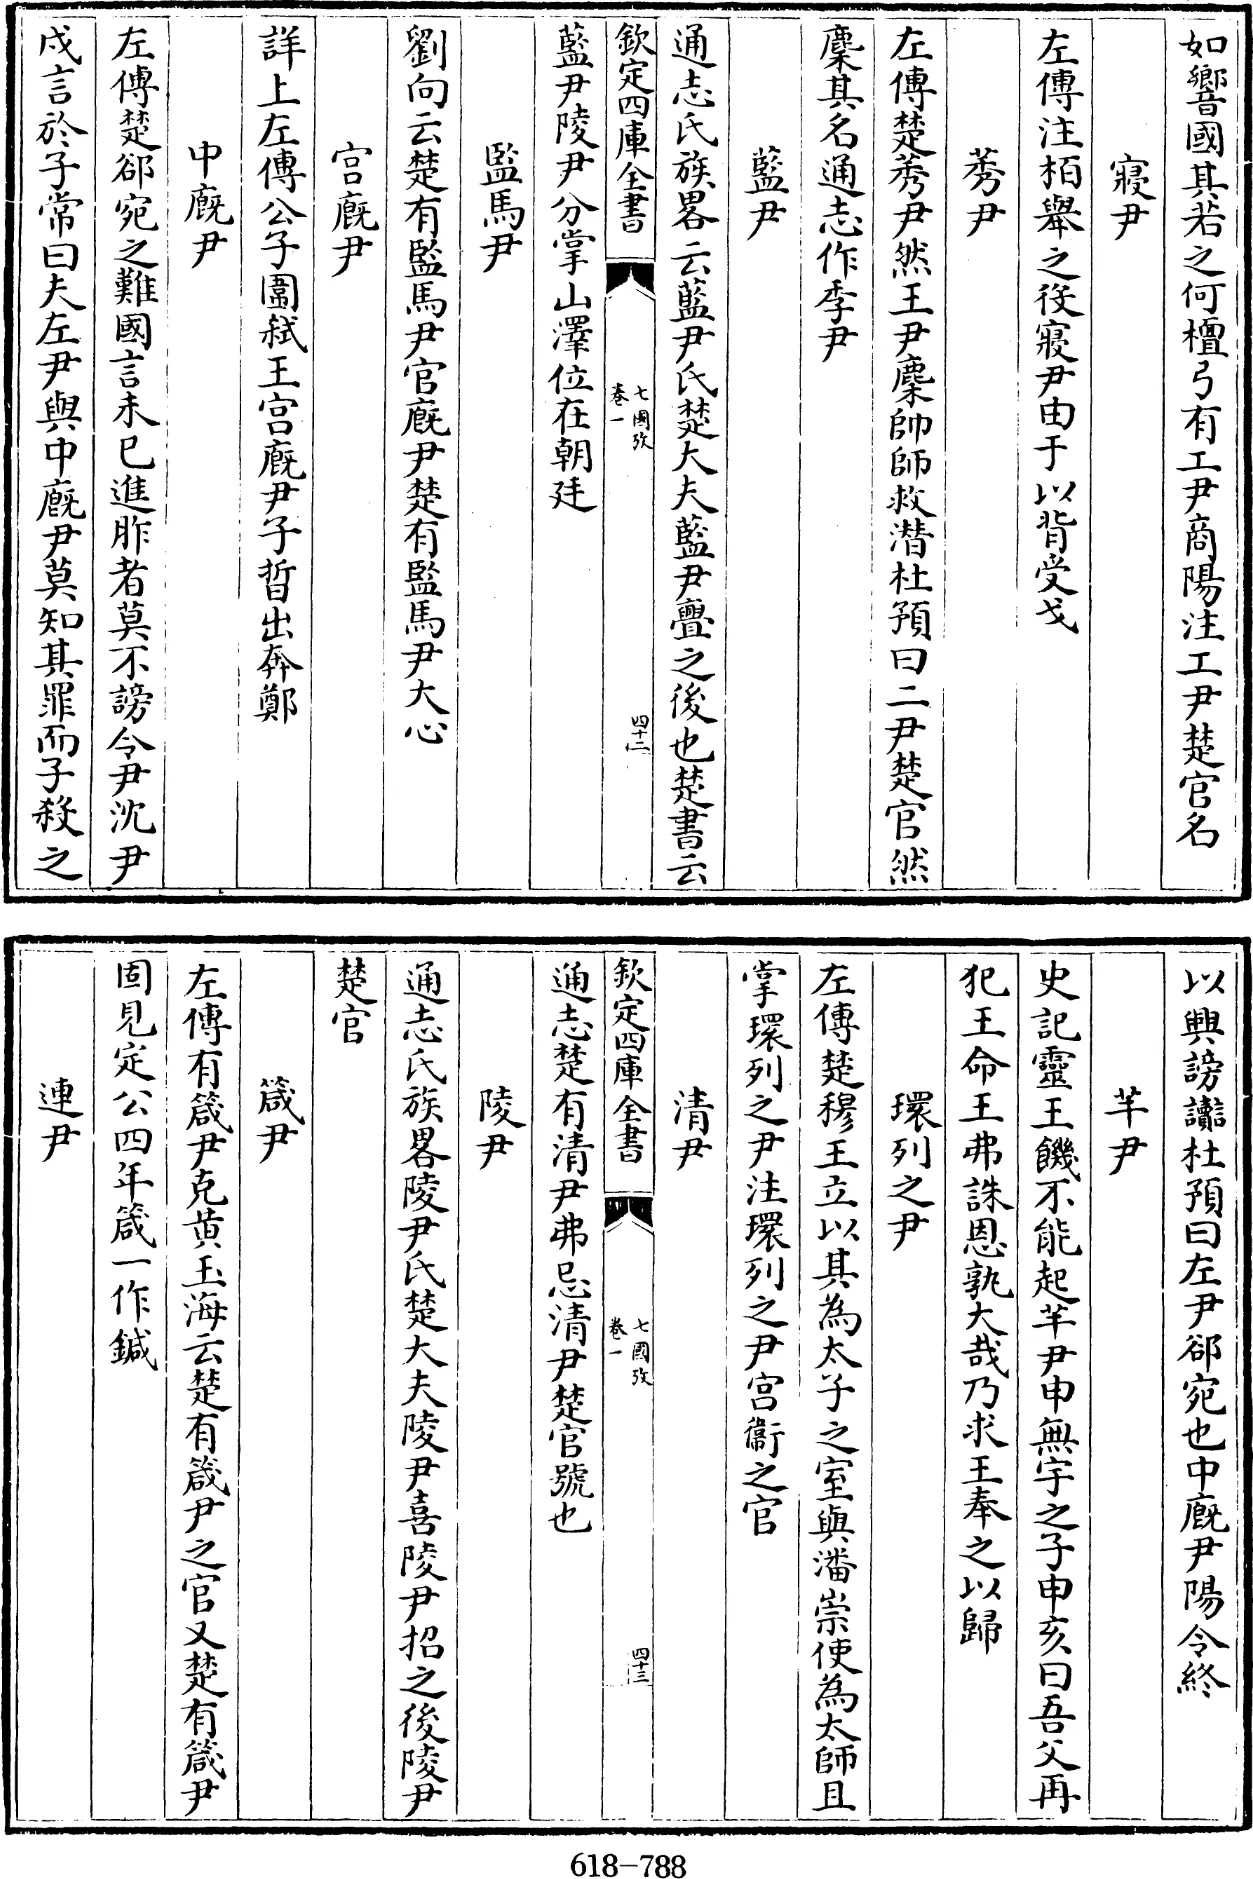 如響國其若之何檀弓有工尹商陽注工尹楚官名
寢尹
左傳注栢舉之役寢尹由于以背受戈
莠尹
左傳楚莠尹然王尹麇帥師救潛杜預曰二尹楚官然
麇其名通志作季尹
藍尹
通志氏族畧云藍尹氏楚大夫藍尹亹之後也楚書云
欽定四庫全書
七國攷
卷一
四十二
藍尹陵尹分掌山澤位在朝廷
監馬尹
劉向云楚有監馬尹官廄尹楚有監馬尹大心
宫廐尹
詳上左傳公子圍弑王宫廐尹子晳出奔鄭
中廐尹
左傳楚郤宛之難國言未已進胙者莫不謗令尹沈尹
戌言於子常曰夫左尹與中廐尹莫知其罪而子殺之
以興謗讟杜預曰左尹郤宛也中廐尹陽令終
芊尹
史記靈王饑不能起芊尹申無宇之子申亥曰吾父再
犯王命王弗誅恩孰大哉乃求王奉之以歸
環列之尹
左傳楚穆王立以其為太子之室與潘崇使為太師且
掌環列之尹注環列之尹宫衞之官
清尹
欽定四庫全書
七國攷
卷一
四十三
通志楚有清尹弗忌清尹楚官號也
陵尹
通志氏族畧陵尹氏楚大夫陵尹喜陵尹招之後陵尹
楚官
箴尹
左傳有箴尹克黄玉海云楚有箴尹之官又楚有箴尹
固見定公四年箴一作鍼
連尹
618-788